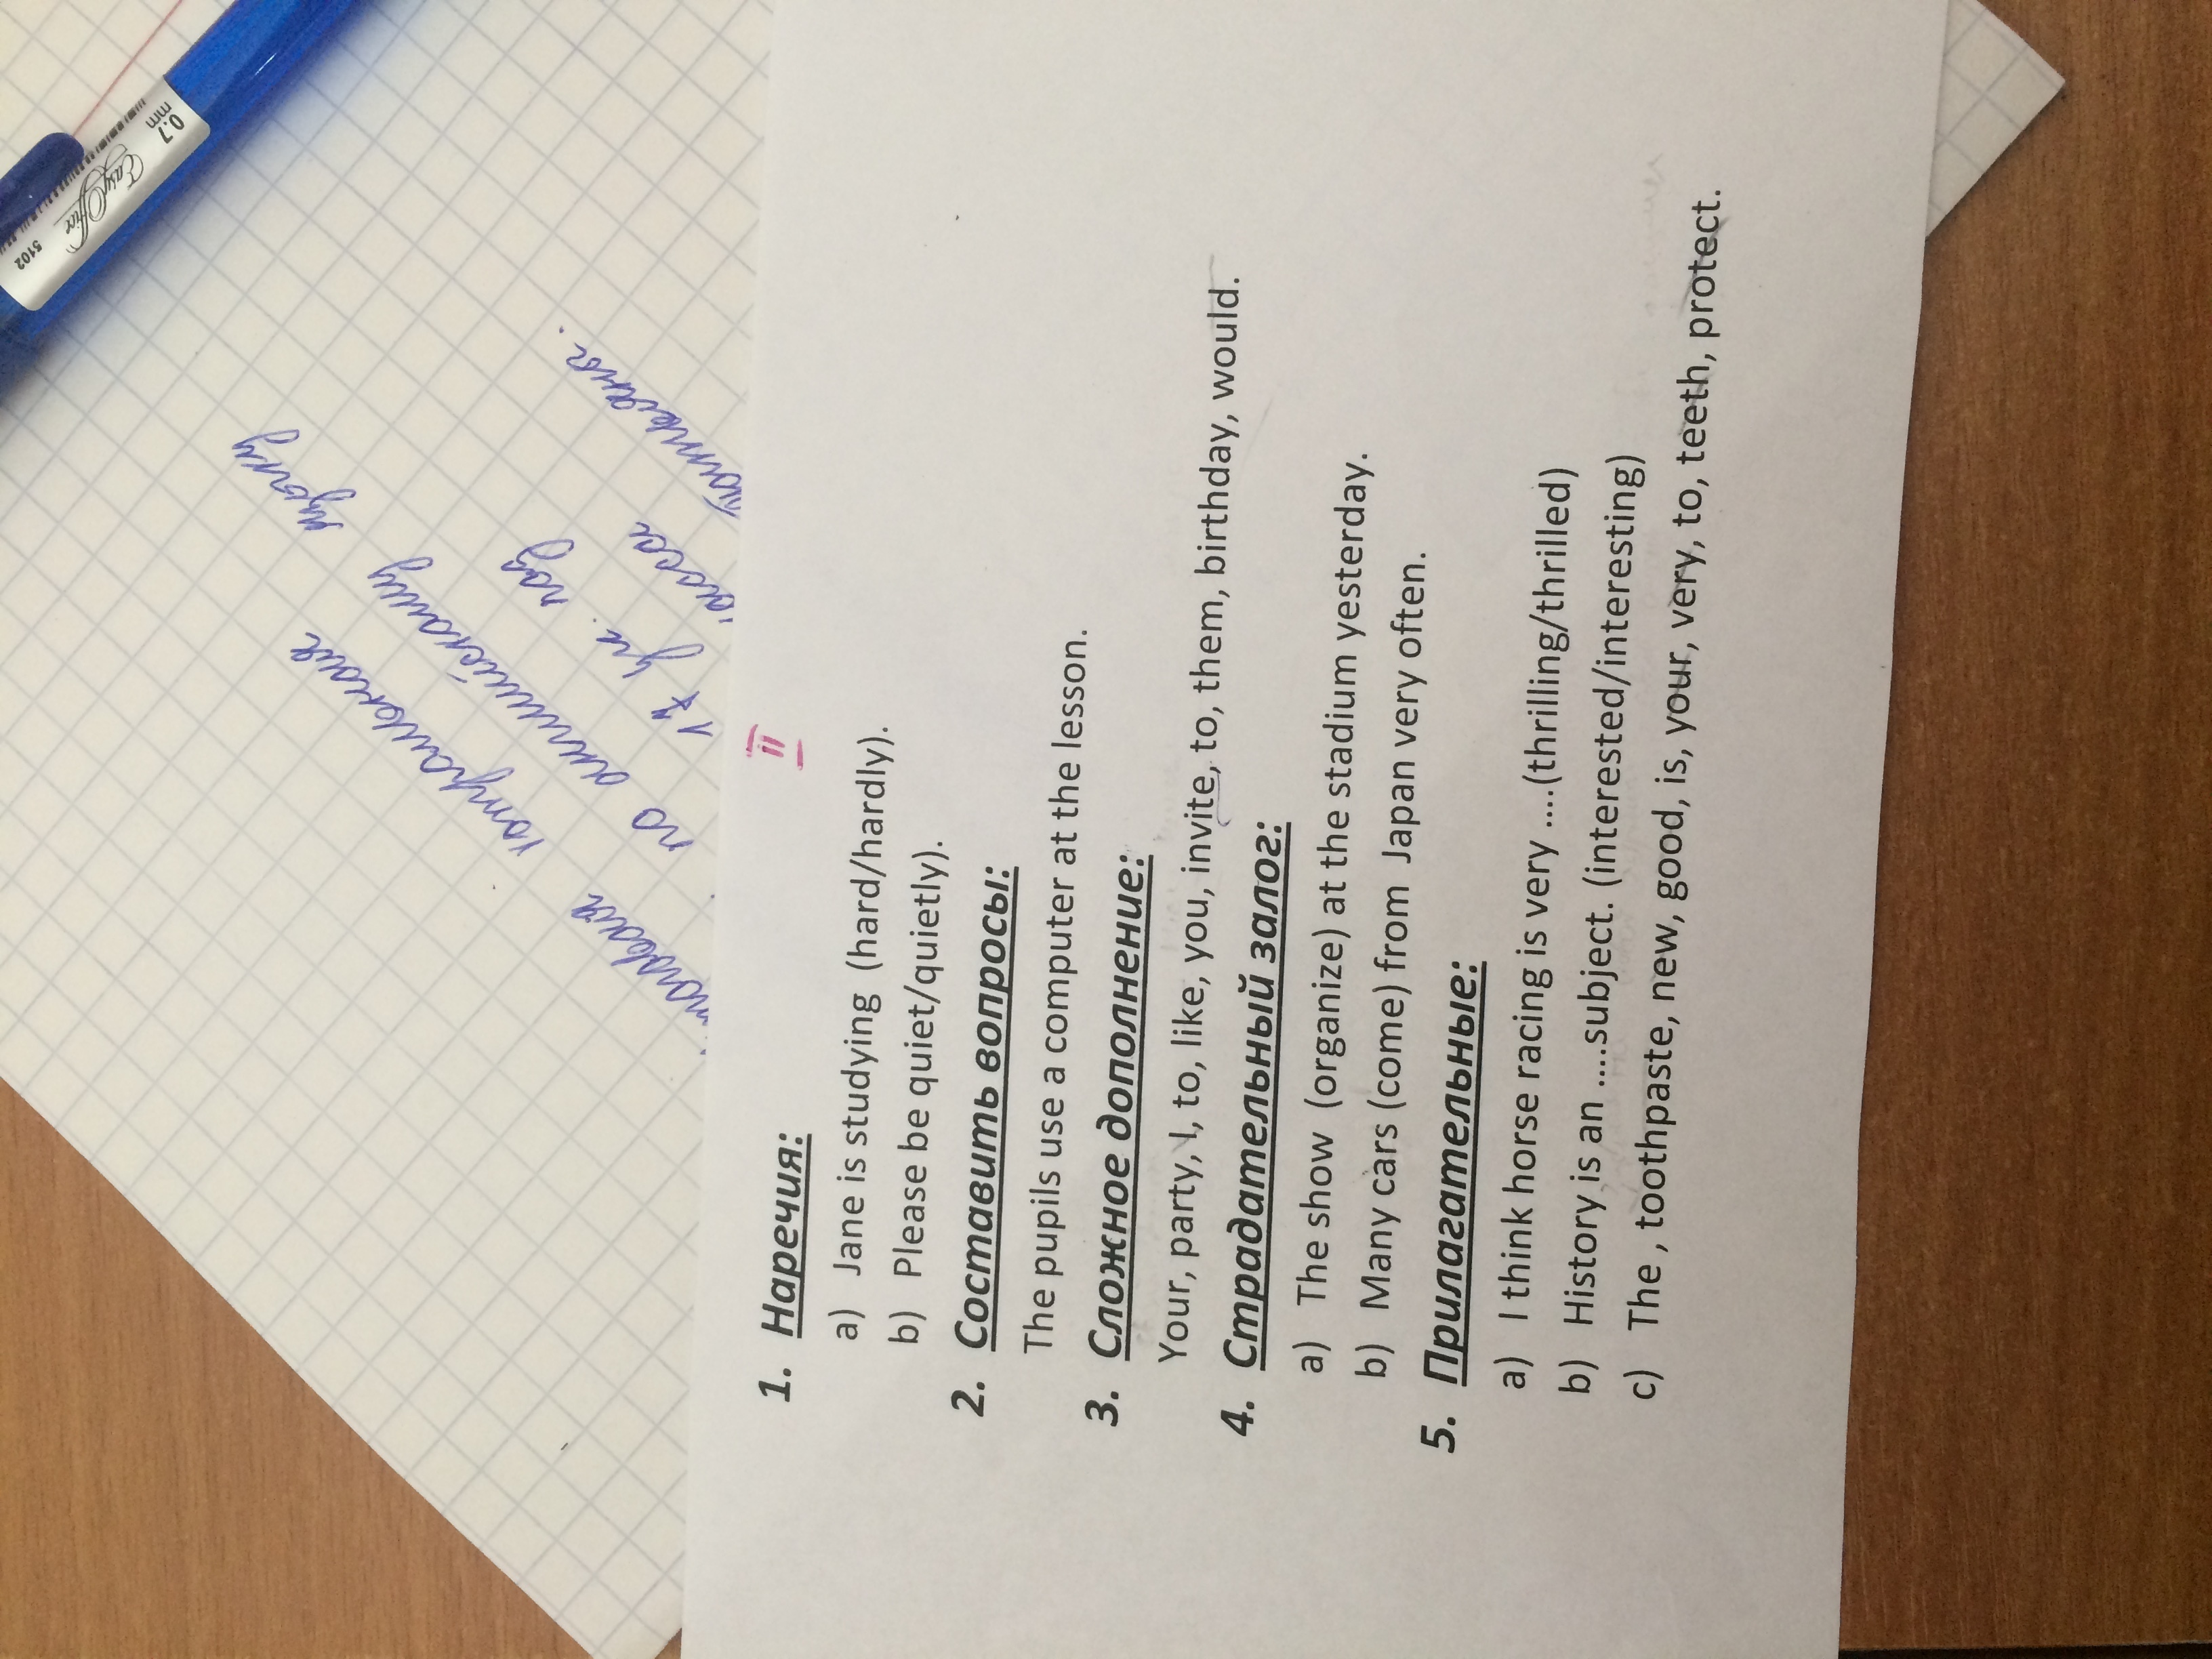 0.7
mm
Easy Office
5102
по английскому языку
17
год
II
1. Наречия:
a) Jane is studying (hard/hardly).
b) Please be quiet/quietly).
2. Составить вопросы:
The pupils use a computer at the lesson.
3. Сложное дополнение:
Your, party, I, to, like, you, invite, to, them, birthday, would.
4. Страдательный залог:
a) The show (organize) at the stadium yesterday.
b) Many cars (come) from Japan very often.
5. Прилагательные:
a) I think horse racing is very ....(thrilling/thrilled)
b) History is an ....subject. (interested/interesting)
c) The , toothpaste, new, good, is, your, very, to, teeth, protect.